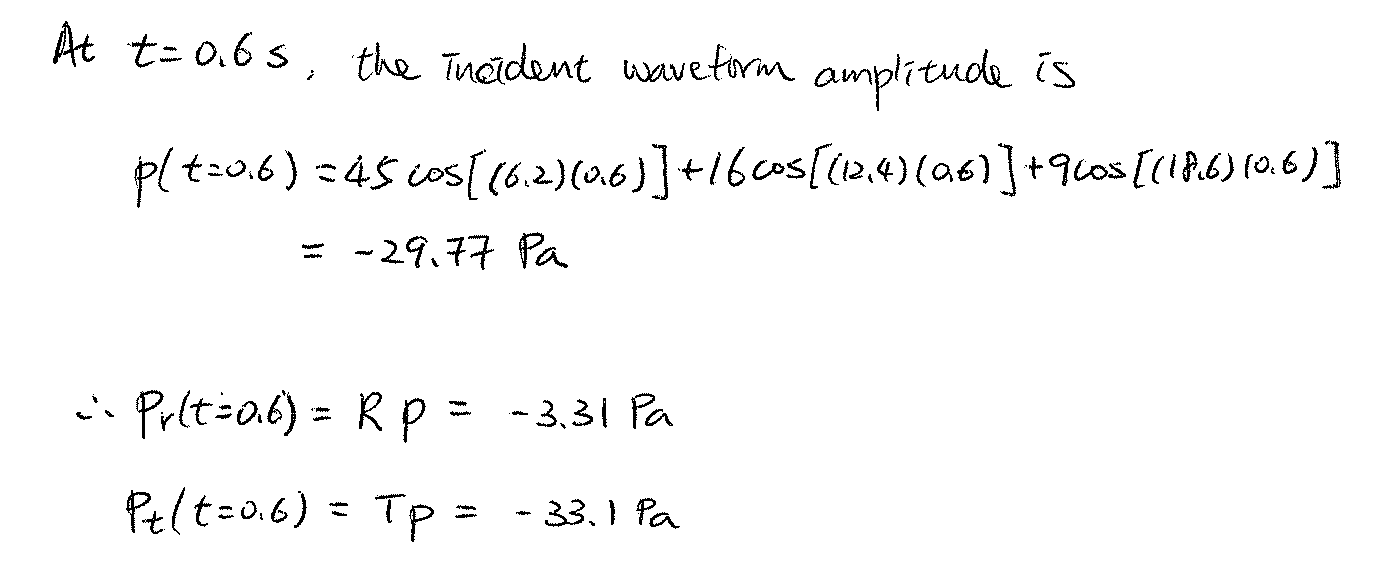 At t=0.6 s, the incident waveform amplitude is
p(t=0.6) = 45 cos[(6.2)(0.6)] + 16 cos[(12.4)(0.6)] + 9 cos[(18.6)(0.6)]
= -29.77 Pa
∴ Pr(t=0.6) = R p = -3.31 Pa
Pt(t=0.6) = T p = -33.1 Pa